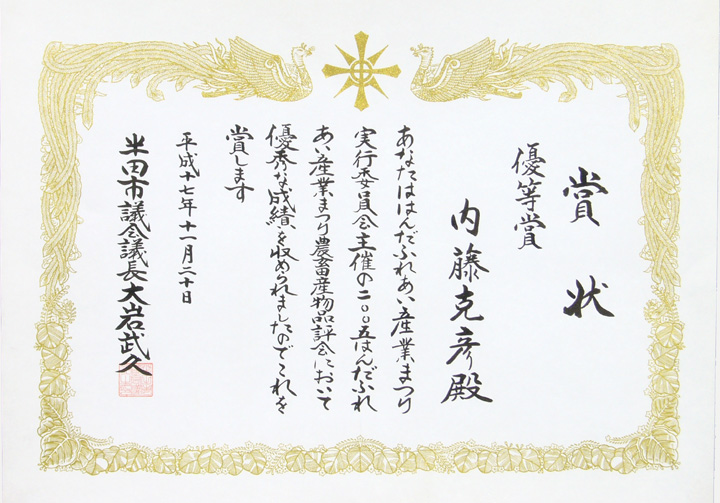 賞状
優等賞
内藤克彦殿
あなたははんだふれあい産業まつり
実行委員会主催の二〇〇五はんだふれ
あい産業まつり農畜産物品評会において
優秀な成績を収められましたのでこれを
賞します
平成十七年十一月二十日
半田市議会議長大岩武久